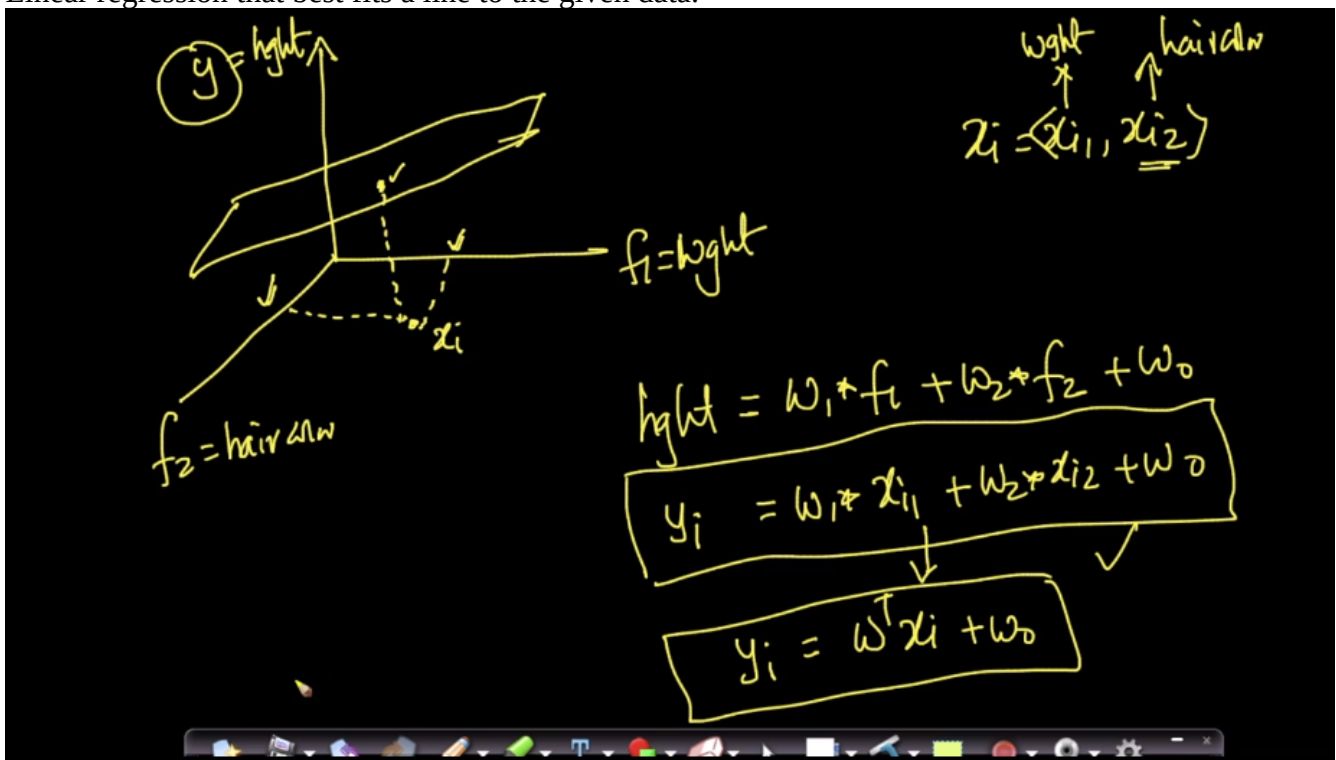 Linear regression that best fits a line to the given data.
y = hght
wght
haircolor
xi = <xi1, xi2>
f1 = wght
xi
f2 = haircolor
hght = w1 * f1 + w2 * f2 + w0
yi = w1 * xi1 + w2 * xi2 + w0
yi = wT xi + w0
T